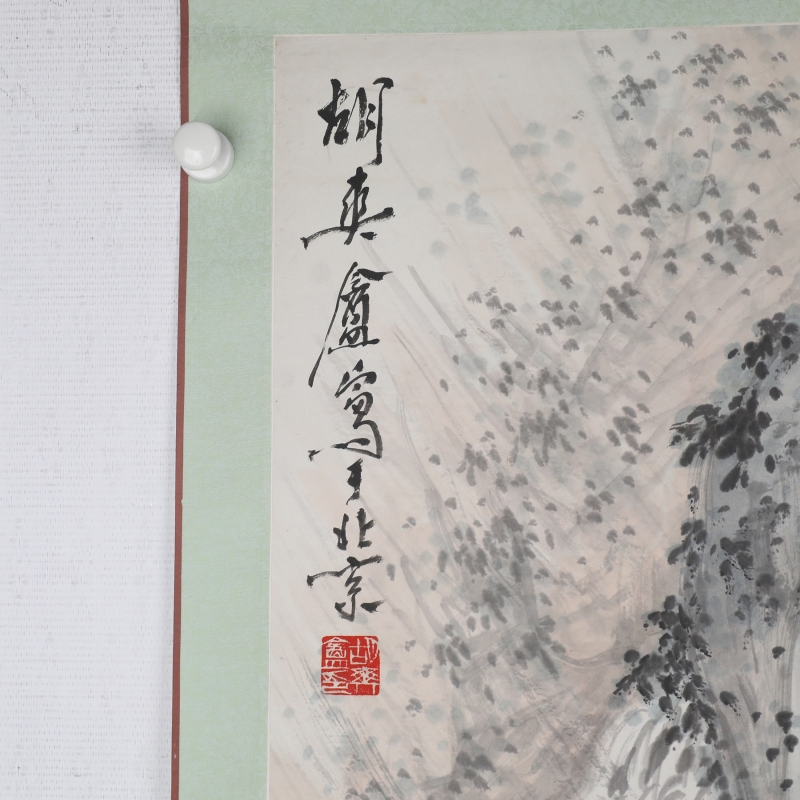 胡爽盦寫于北京
胡爽盦印